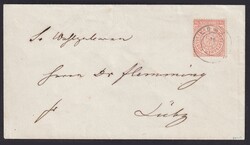 Sr Wohlgeboren
Herrn Dr Flemming
fr Lübz